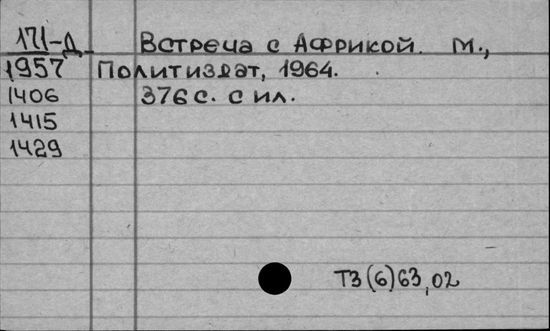 171-Д Встреча с Африкой. М.,
1957 Политиздат, 1964.
1406 376 с. с ил.
1415
1429
Т3(6)63,02